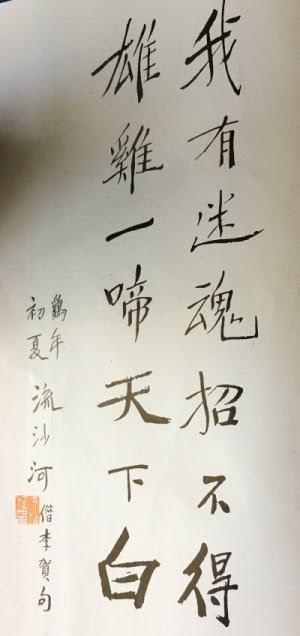 我有迷魂招不得
雄雞一啼天下白
鷄年
初夏 流沙河 借李賀句